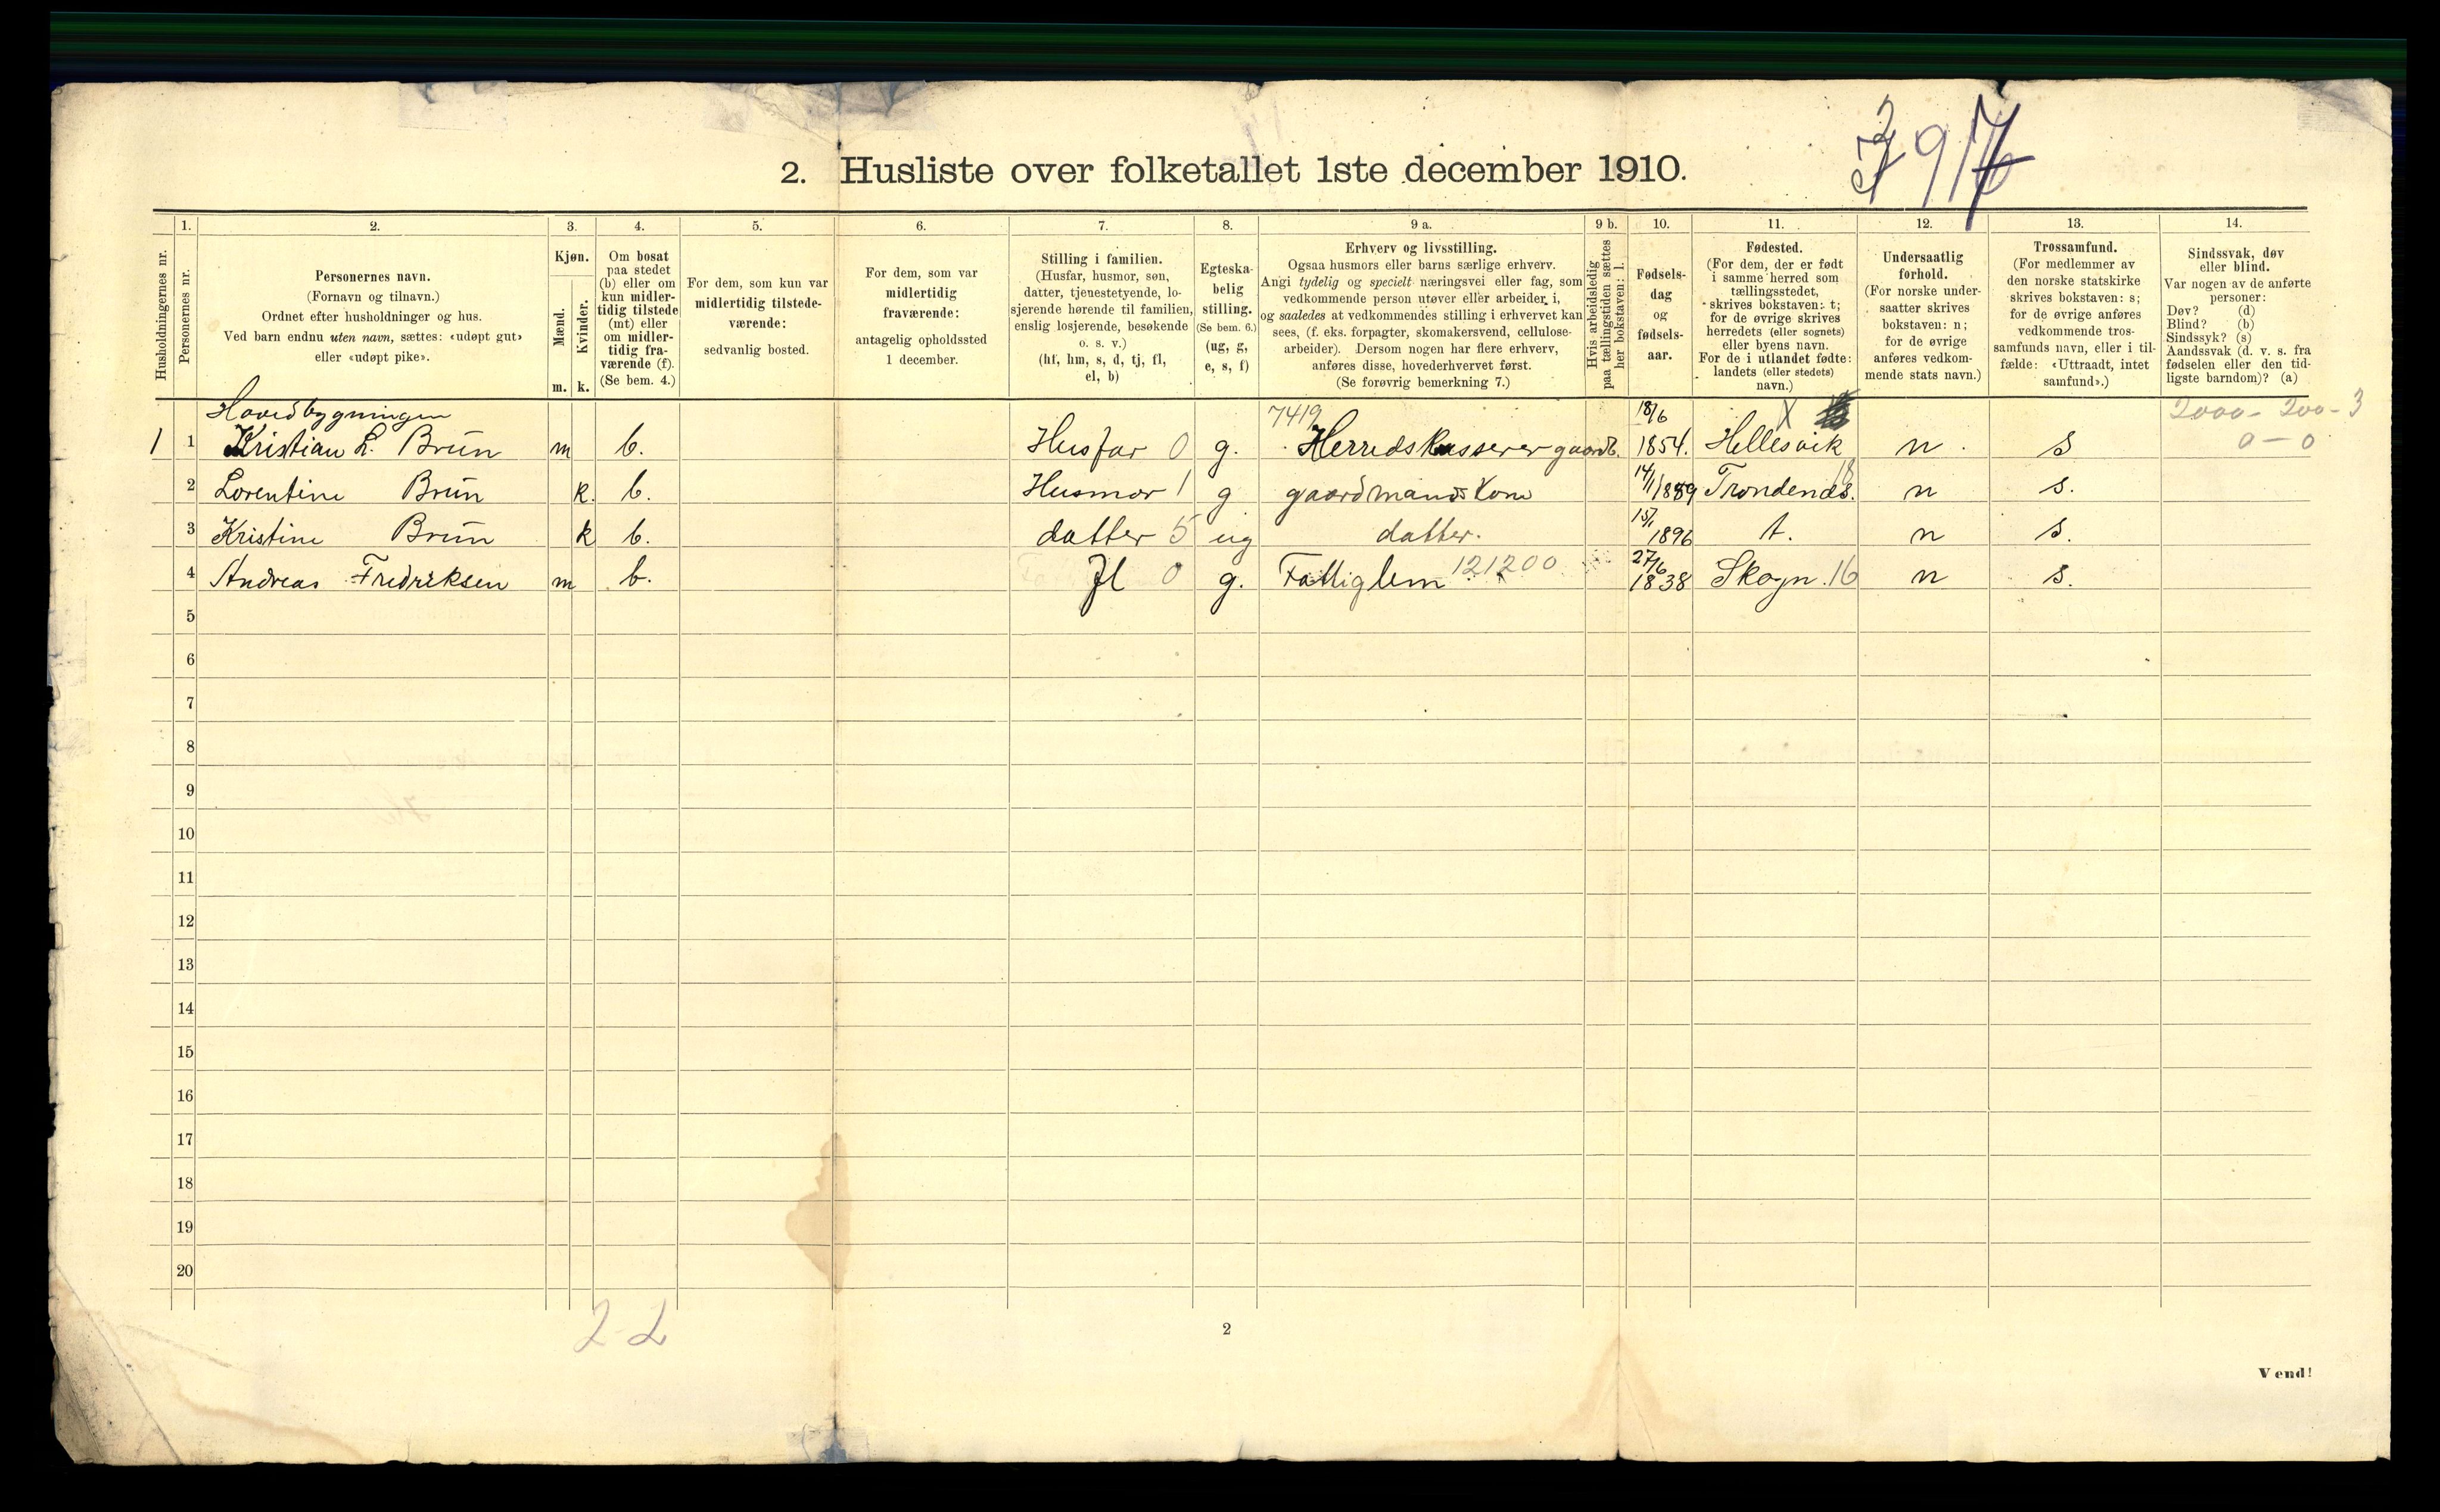 2. Husliste over folketallet 1ste december 1910.
1. 2. 3. 4. 5. 6. 7. 8. 9 a. 9 b. 10. 11. 12. 13. 14.
Husholdningernes nr.
Personernes nr.
Personernes navn.
(Fornavn og tilnavn.)
Ordnet efter husholdninger og hus.
Ved barn endnu uten navn, sættes: «udøpt gut»
eller «udøpt pike».
Kjøn.
Mænd.
Kvinder.
m. k.
Om bosat
paa stedet
(b) eller om
kun midler-
tidig tilstede
(mt) eller
om midler-
tidig fra-
værende (f).
(Se bem. 4.)
For dem, som kun var
midlertidig tilstede-
værende:
sedvanlig bosted.
For dem, som var
midlertidig
fraværende:
antagelig opholdssted
1 december.
Stilling i familien.
(Husfar, husmor, søn,
datter, tjenestetyende, lo-
sjerende hørende til familien,
enslig losjerende, besøkende
o. s. v.)
(hf, hm, s, d, tj, fl,
el, b)
Egteska-
belig
stilling.
(Se bem. 6.)
(ug, g,
e, s, f)
Erhverv og livsstilling.
Ogsaa husmors eller barns særlige erhverv.
Angi tydelig og specielt næringsvei eller fag, som
vedkommende person utøver eller arbeider i,
og saaledes at vedkommendes stilling i erhvervet kan
sees, (f. eks. forpagter, skomakersvend, cellulose-
arbeider). Dersom nogen har flere erhverv,
anføres disse, hovederhvervet først.
(Se forøvrig bemerkning 7.)
Hvis arbeidsledig
paa tællingstiden sættes
her bokstaven: l.
Fødsels-
dag
og
fødsels-
aar.
Fødested.
(For dem, der er født
i samme herred som
tællingsstedet,
skrives bokstaven: t;
for de øvrige skrives
herredets (eller sognets)
eller byens navn.
For de i utlandet fødte:
landets (eller stedets)
navn.)
Undersaatlig
forhold.
(For norske under-
saatter skrives
bokstaven: n;
for de øvrige
anføres vedkom-
mende stats navn.)
Trossamfund.
(For medlemmer av
den norske statskirke
skrives bokstaven: s;
for de øvrige anføres
vedkommende tros-
samfunds navn, eller i til-
fælde: «Uttraadt, intet
samfund».)
Sindssvak, døv
eller blind.
Var nogen av de anførte
personer:
Døv? (d)
Blind? (b)
Sindssyk? (s)
Aandssvak (d. v. s. fra
fødselen eller den tid-
ligste barndom)? (a)
Hovedbygningen 7419 18/6 X 2000 - 200 - 3
1 1 Kristian L. Brun m b. Husfar 0 g. Herredskasserer gaardb. 1854. Hellesvik n. s 0 - 0
2 Lorentine Brun k. b. Husmor 1 g gaardmands Kone 14/11 1859 Trondenæs. 18 n s.
3 Kristine Brun k b. datter 5 ug datter. 15/1 1896 t. n s.
4 Andreas Fredriksen m b. fl 0 g. Fattiglem 121200 27/6 1838 Skogn. 16 n s.
5
6
7
8
9
10
11
12
13
14
15
16
17
18
19
20
2-2
2
Vend!